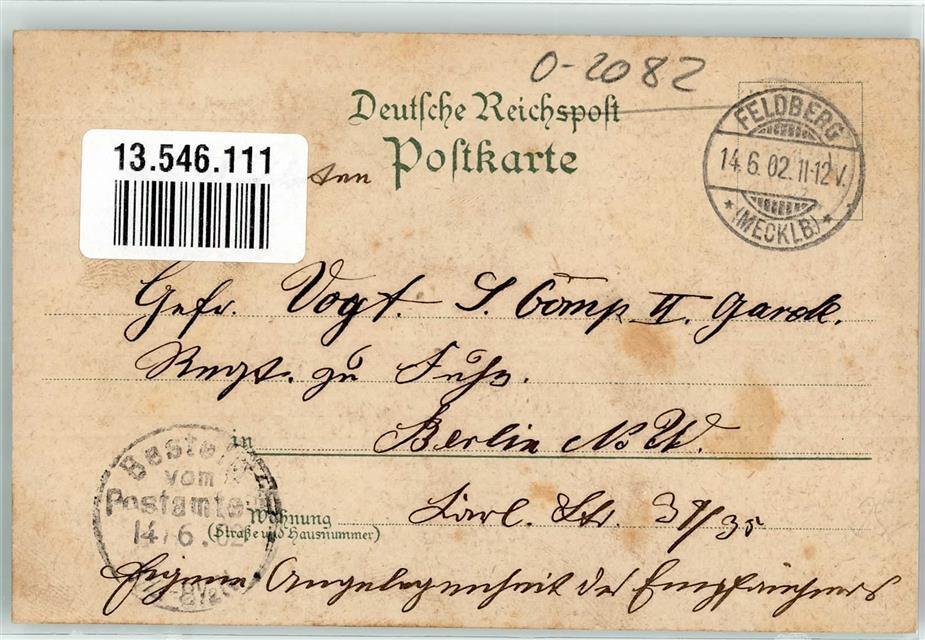 0-2082
Deutsche Reichspost
Postkarte
13.546.111
FELDBERG
14.6.02.11-12V.
* (MECKLB) *
Gefr. Vogt. 5. Comp II. Garde.
Regt. zu Fuß.
in Berlin N.W.
Bestellt
vom
Postamte
14/6.02
Wohnung Karl. Str. 34/35
(Straße und Hausnummer)
Eigene Angelegenheit des Empfängers